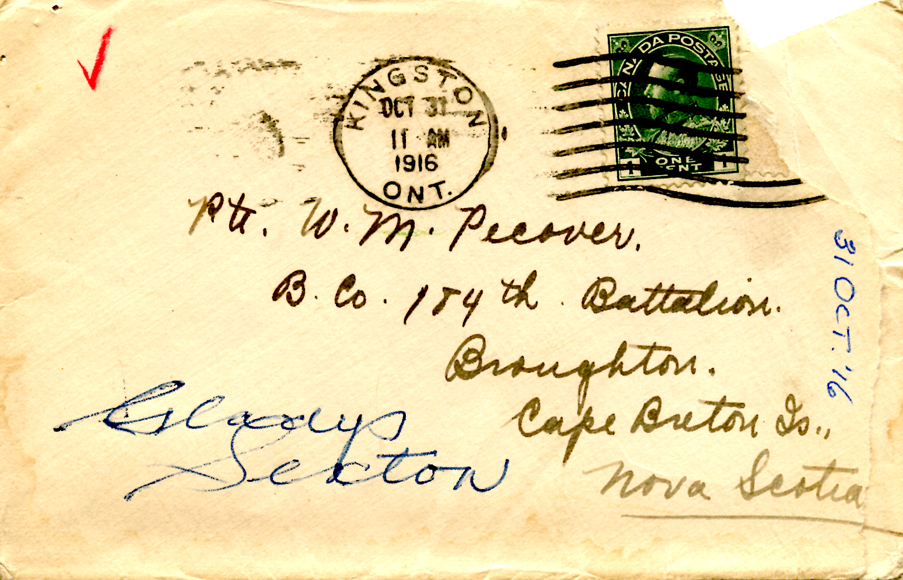 KINGSTON
OCT 31
11 AM
1916
ONT.
CANADA POSTAGE
1 ONE CENT 1
Pte. W. M. Pecover.
B. Co. 184th. Battalion.
Broughton.
Cape Breton Is.,
Nova Scotia
Gladys
Sexton
31 OCT. '16